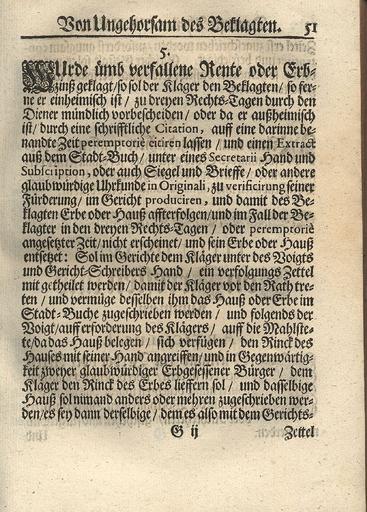 Von Ungehorsam des Beklagten. 51
5.
WUrde ümb verfallene Rente oder Erb-
zinß geklagt/ so sol der Kläger den Beklagten/ so fer-
ne er einheimisch ist / zu dreyen Rechts-Tagen durch den
Diener mündlich vorbescheiden/ oder da er außheimisch
ist/ durch eine schrifftliche Citation, auff eine darinne be-
nandte Zeit peremptoriè citiren lassen / und einen Extract
auß dem Stadt-Buch/ unter eines Secretarii Hand und
Subscription, oder auch Siegel und Brieffe / oder andere
glaubwürdige Uhrkunde in Originali, zu verificirung seiner
Fürderung/ im Gericht produciren, und damit des Be-
klagten Erbe oder Hauß affterfolgen/ und im Fall der Be-
klagter in den dreyen Rechts-Tagen / oder peremptoriè
angesetzter Zeit/ nicht erscheinet/ und sein Erbe oder Hauß
entsetzt: Sol im Gerichte dem Kläger unter des Voigts
und Gericht-Schreibers Hand / ein verfolgungs Zettel
mit getheilet werden/ damit der Kläger vor den Rath tre-
ten / und vermüge desselben ihm das Hauß oder Erbe im
Stadt-Buche zugeschrieben werden / und folgends der
Voigt/ auff erforderung des Klägers/ auff die Mahlste-
te/ da das Hauß belegen / sich verfügen / den Rinck des
Hauses mit seiner Hand angreiffen/ und in Gegenwärtig-
keit zweyer glaubwürdiger Erbgesessener Bürger / dem
Kläger den Rinck des Erbes lieffern sol / und dasselbige
Hauß sol nimand anders oder mehren zugeschrieben wer-
den/ es sey dann derselbige / dem es also mit dem Gerichts-
G ij Zettel